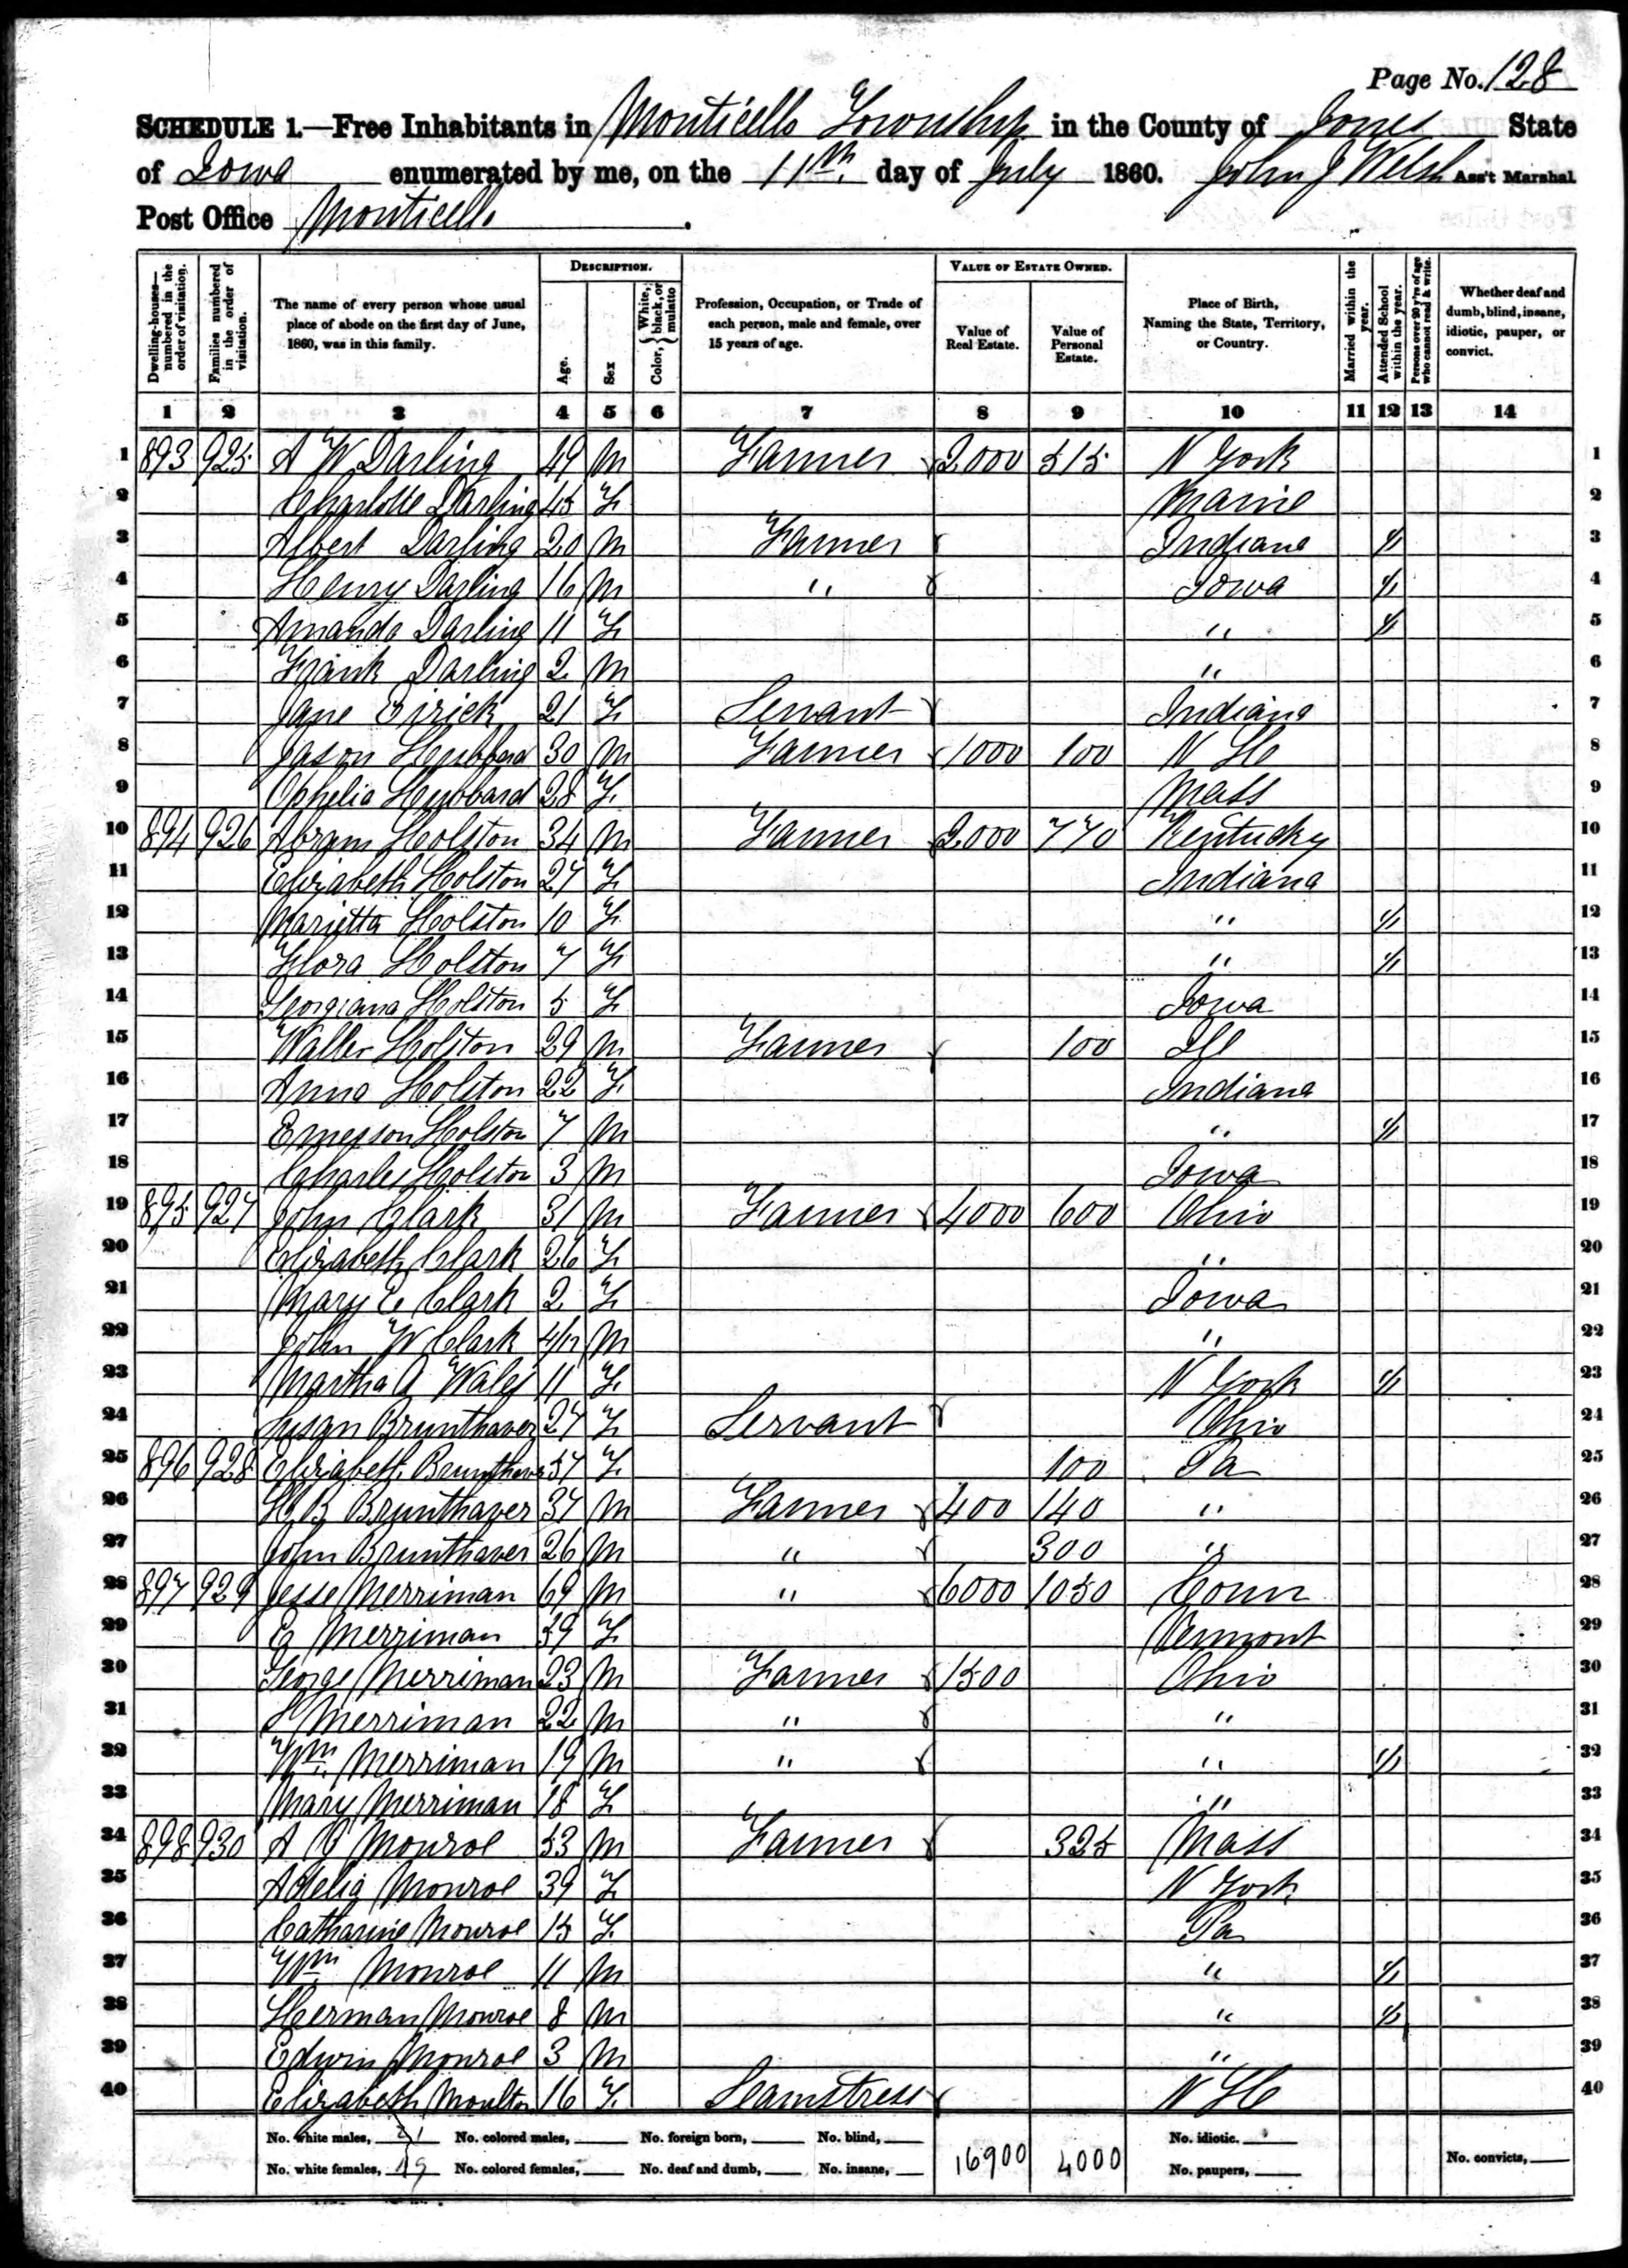 Page No. 128
SCHEDULE 1.—Free Inhabitants in Monticello Township in the County of Jones State
of Iowa enumerated by me, on the 11th. day of July 1860. John J Welsh Ass't Marshal
Post Office Monticello.
Dwelling-houses—numbered in the order of visitation. Families numbered in the order of visitation. The name of every person whose usual place of abode on the first day of June, 1860, was in this family. DESCRIPTION. Age. Sex Color, { White, black, or mulatto Profession, Occupation, or Trade of each person, male and female, over 15 years of age. VALUE OF ESTATE OWNED. Value of Real Estate. Value of Personal Estate. Place of Birth, Naming the State, Territory, or Country. Married within the year. Attended School within the year. Persons over 20 y'rs of age who cannot read & write. Whether deaf and dumb, blind, insane, idiotic, pauper, or convict.
1 2 3 4 5 6 7 8 9 10 11 12 13 14
1 893 925 A W Darling 49 M Farmer 2,000 515 N York 1
2 Charlotte Darling 45 F Maine 2
3 Albert Darling 20 M Farmer Indiana 1/ 3
4 Henry Darling 16 M " Iowa 1/ 4
5 Amanda Darling 11 F " 1/ 5
6 Frank Darling 2 M " 6
7 Jane Eirick 21 F Servant Indiana 7
8 Jason Hubbard 30 M Farmer 1000 100 N H 8
9 Ophelia Hubbard 28 F Mass 9
10 894 926 Abram Holston 34 M Farmer 2,000 770 Kentucky 10
11 Elizabeth Holston 27 F Indiana 11
12 Marietta Holston 10 F " 1/ 12
13 Flora Holston 7 F " 1/ 13
14 Georgiana Holston 5 F Iowa 14
15 Walter Holston 29 M Farmer 100 Ill 15
16 Anna Holston 22 F Indiana 16
17 Emerson Holston 7 M " 1/ 17
18 Charles Holston 3 M Iowa 18
19 895 927 John Clark 31 M Farmer 4000 600 Ohio 19
20 Elizabeth Clark 26 F " 20
21 Mary E Clark 2 F Iowa 21
22 John W Clark 4/12 M " 22
23 Martha A 11 F N York 1/ 23
24 Susan Brunthaver 27 F Servant Ohio 24
25 896 928 Elizabeth Brunthaver 57 F 100 Pa 25
26 H B Brunthaver 37 M Farmer 400 140 " 26
27 John Brunthaver 26 M " 300 " 27
28 897 929 Jesse Merriman 69 M " 6000 1050 Conn 28
29 E Merriman 59 F Vermont 29
30 George Merriman 23 M Farmer 1500 Ohio 30
31 Merriman 22 M " " 31
32 Wm. Merriman 19 M " " 1/ 32
33 Mary Merriman 18 F " 33
34 898 930 A J Monroe 53 M Farmer 325 Mass 34
35 Adelia Monroe 39 F N York 35
36 Catharine Monroe 15 F Pa 36
37 Wm Monroe 11 M " 1/ 37
38 Herman Monroe 8 M " 1/ 38
39 Edwin Monroe 3 M " 39
40 Elizabeth Moulton 16 F Seamstress N H 40
No. white males, 21 No. colored males, No. foreign born, No. blind, No. idiotic.
No. white females, 19 No. colored females, No. deaf and dumb, No. insane, 16900 4000 No. paupers, No. convicts,